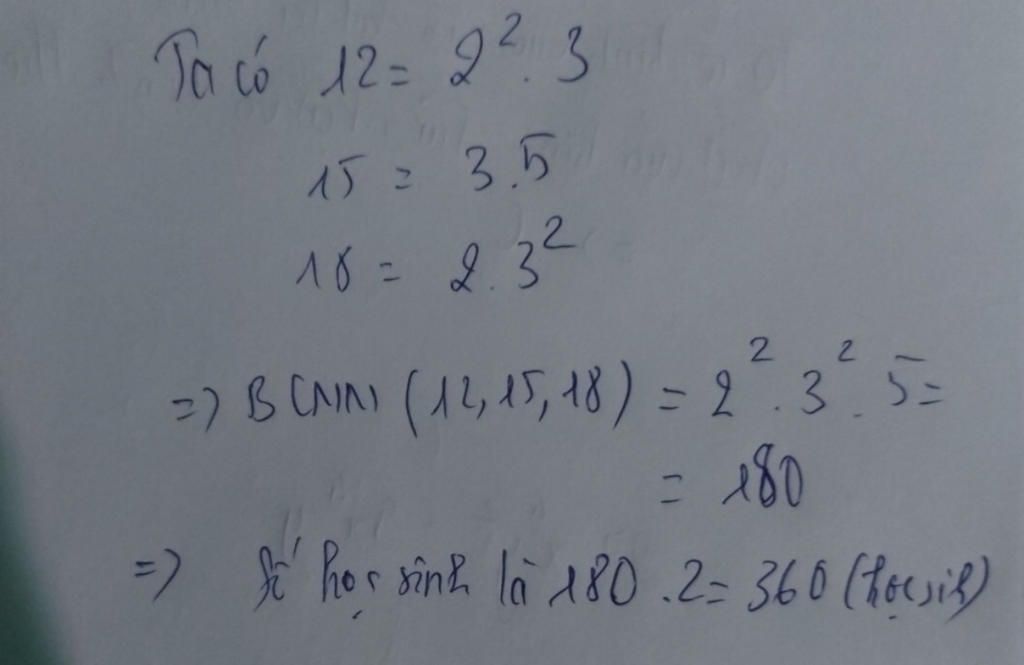 Ta có 12 = 2². 3
15 = 3.5
18 = 2.3²
=> BCNN (12,15,18) = 2². 3². 5 =
= 180
=> Số học sinh là 180.2= 360 (học sih)